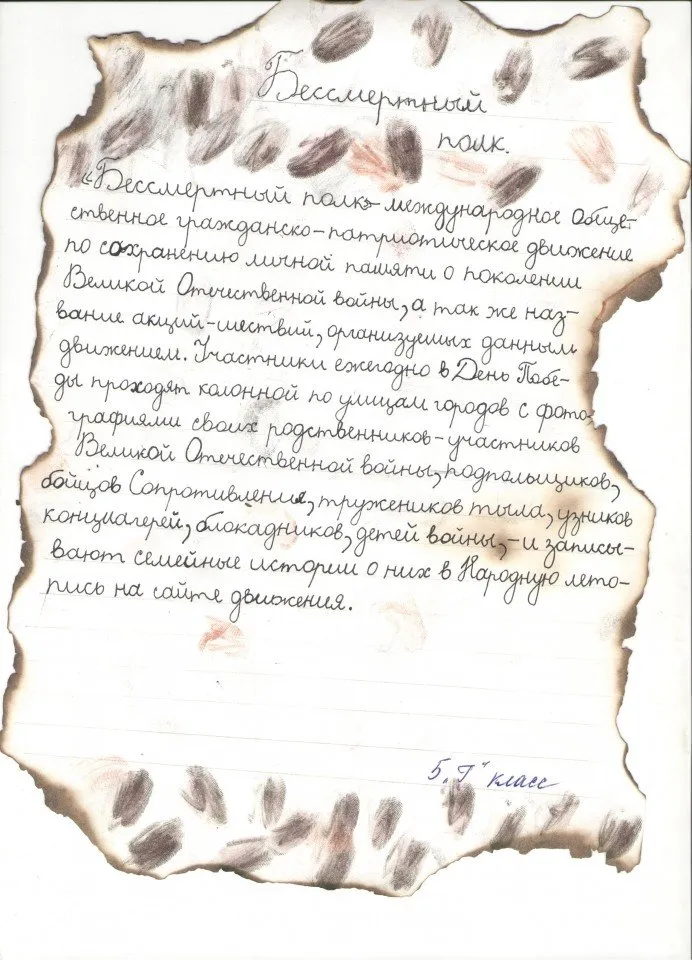 Бессмертный
полк.
«Бессмертный полк»- международное обще-
ственное гражданско-патриотическое движение
по сохранению личной памяти о поколении
Великой Отечественной войны, а так же наз-
вание акций-шествий, организуемых данным
движением. Участники ежегодно в День Побе-
ды проходят колонной по улицам городов с фото-
графиями своих родственников-участников
Великой Отечественной войны, подпольщиков,
бойцов Сопротивления, тружеников тыла, узников
концлагерей, блокадников, детей войны, - и записы-
вают семейные истории о них в Народную лето-
пись на сайте движения.
5 „Г" класс